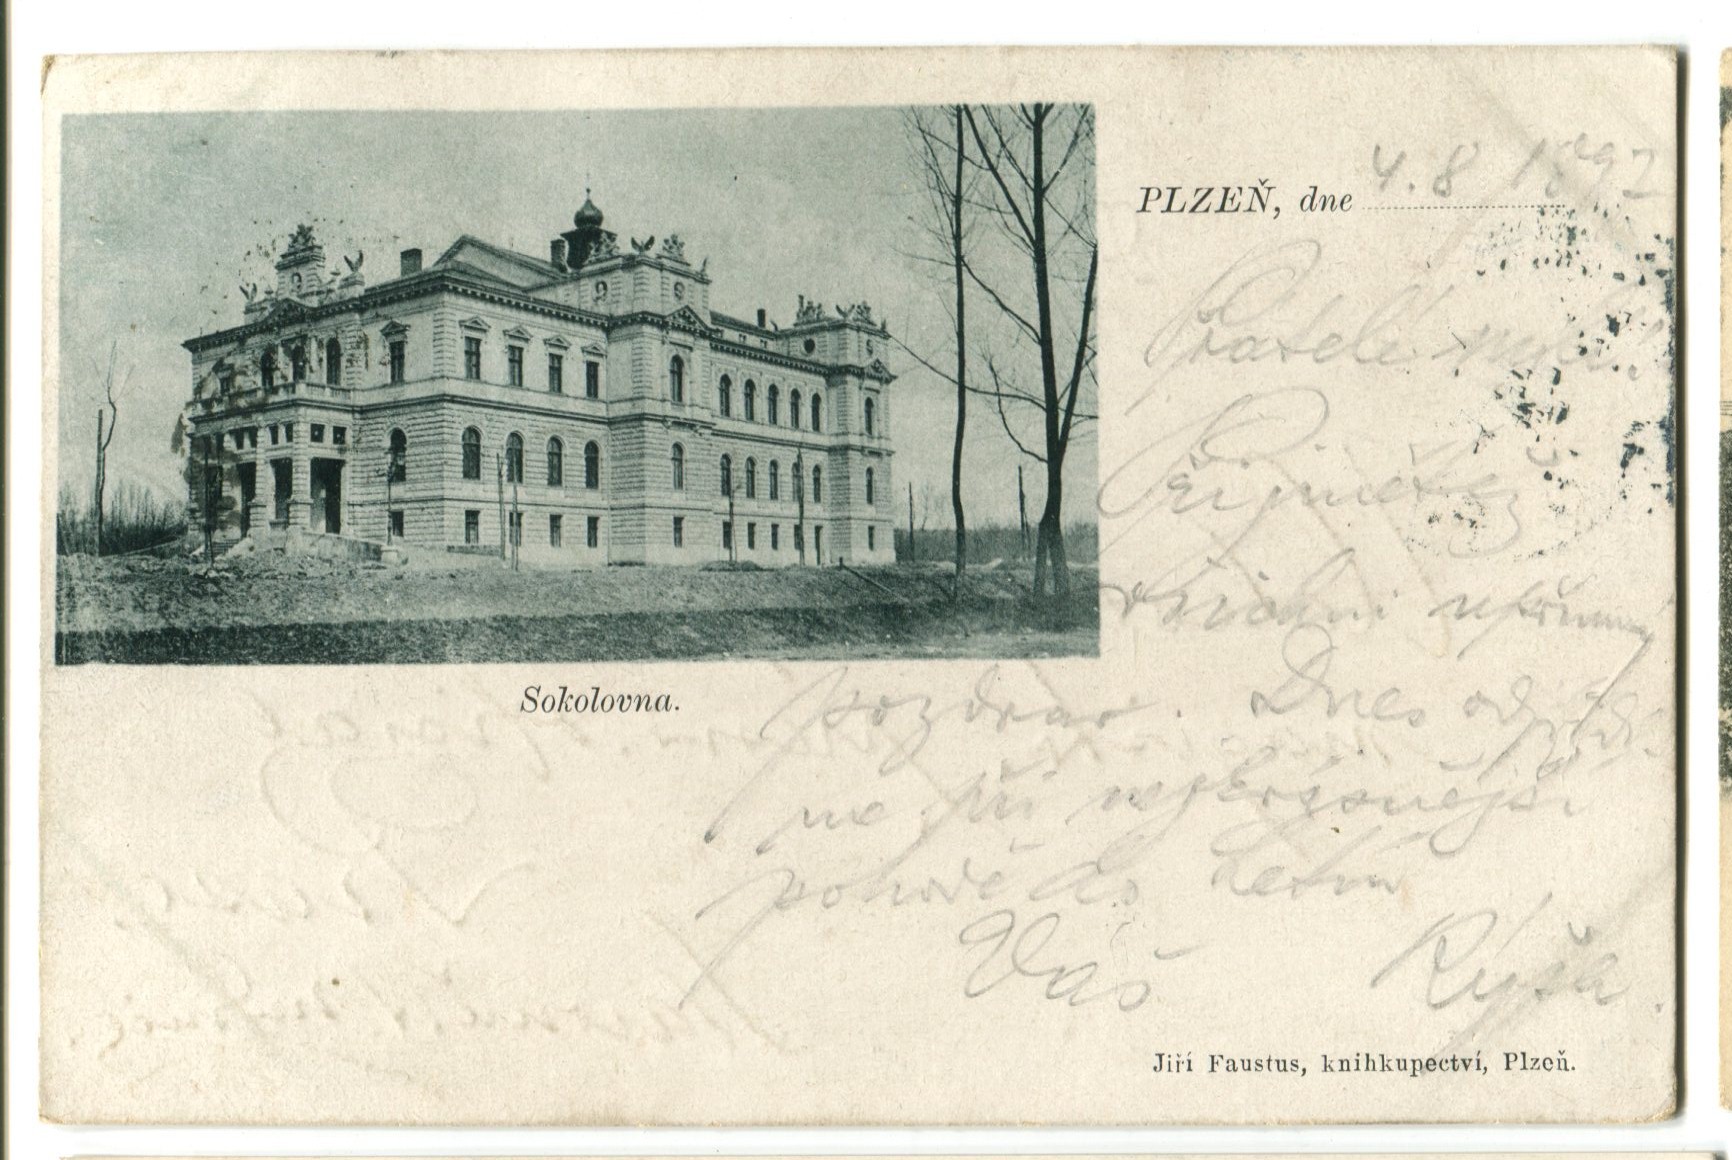 PLZEŇ, dne 4.8 1897
Přátelé
Přijměte
srdečný upřímný
pozdrav. Dnes odjíždí-
me při nejkrásnější
pohodě do
Váš Rýša.
Sokolovna.
Jiří Faustus, knihkupectví, Plzeň.